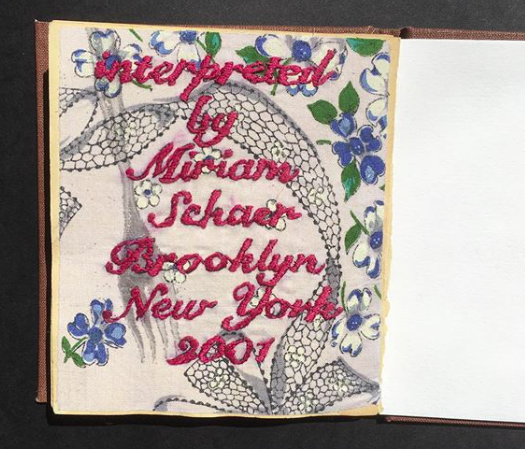 interpreted
by
Miriam
Schaer
Brooklyn
New York
2001